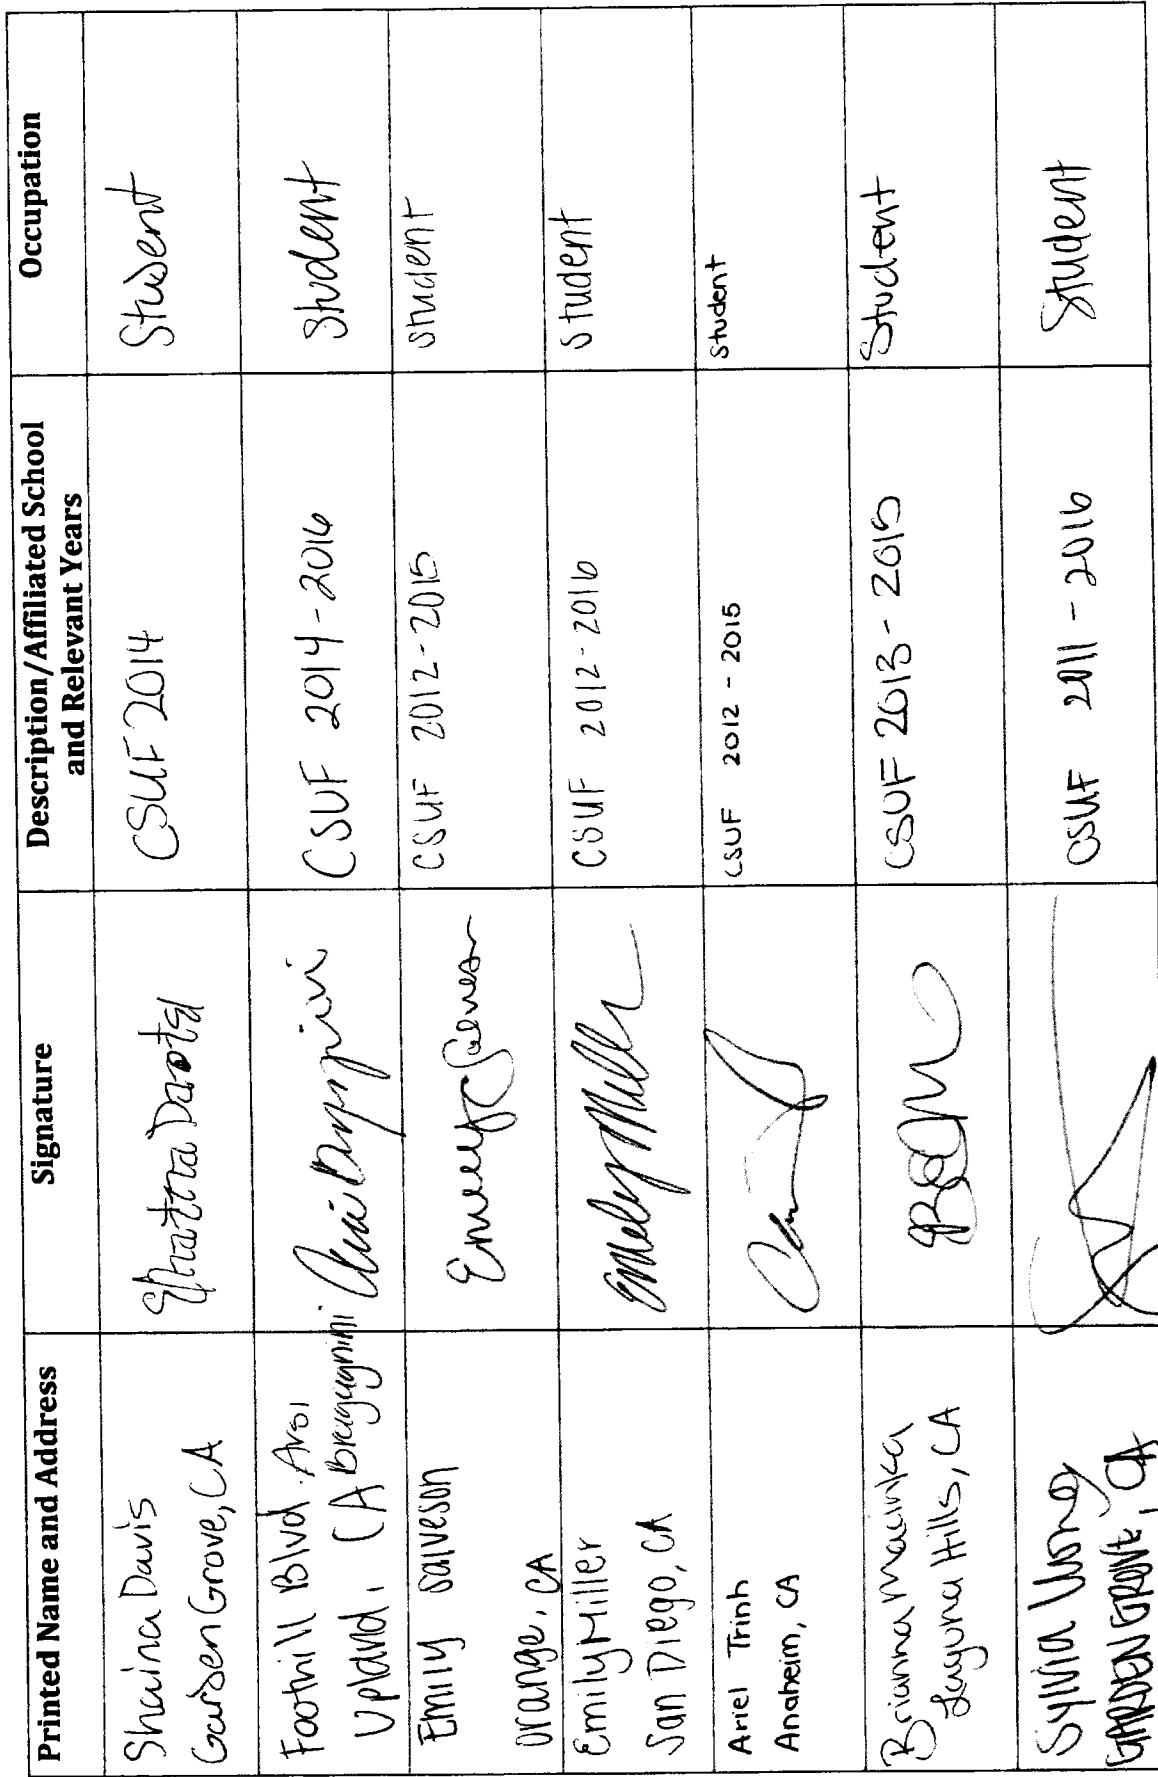 Printed Name and Address
Signature
Description/Affiliated School
and Relevant Years
Occupation
Shaina Davis
Garden Grove, CA
CSUF 2014
Student
Foothill Blvd.
Upland, CA Bragagnini
CSUF 2014-2016
Student
Emily Salveson
Orange, CA
CSUF 2012-2015
Student
Emily Miller
San Diego, CA
Emily Miller
CSUF 2012-2016
Student
Ariel Trinh
Anaheim, CA
CSUF 2012-2015
Student
Brianna
Laguna Hills, CA
CSUF 2013-2015
Student
Sylvia
GARDEN GROVE, CA
CSUF 2011-2016
Student